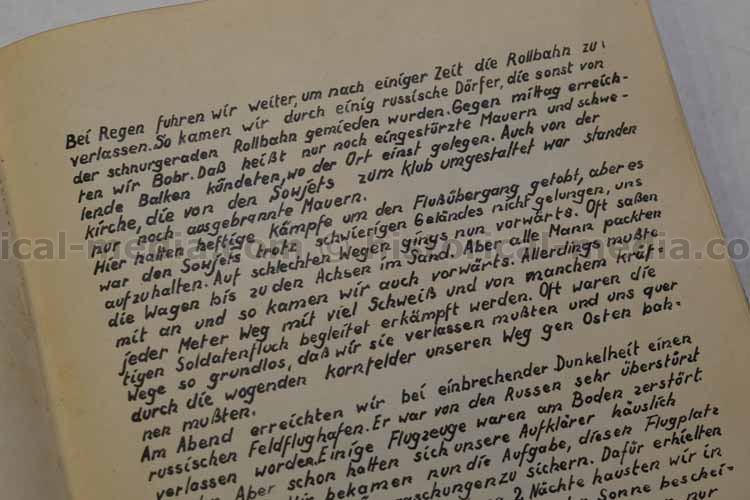 Bei Regen fuhren wir weiter, um nach einiger Zeit die Rollbahn zu
verlassen. So kamen wir durch einig russische Dörfer, die sonst von
der schnurgeraden Rollbahn gemieden wurden. Gegen mittag erreich-
ten wir Bobr. Daß heißt nur noch eingestürzte Mauern und schwe-
lende Balken kündeten, wo der Ort einst gelegen. Auch von der
kirche, die von den Sowjets zum klub umgestaltet war standen
nur noch ausgebrannte Mauern.
Hier hatten heftige kämpfe um den Flußübergang getobt, aber es
war den Sowjets trotz schwierigen Geländes nicht gelungen, uns
aufzuhalten. Auf schlechten Wegen gings nun vorwärts. Oft saßen
die Wagen bis zu den Achsen im Sand. Aber alle Mann packten
mit an und so kamen wir auch vorwärts. Allerdings mußte
jeder Meter Weg mit viel Schweiß und von manchem kräf-
tigen Soldatenfluch begleitet erkämpft werden. Oft waren die
Wege so grundlos, daß wir sie verlassen mußten und uns quer
durch die wogenden kornfelder unseren Weg gen Osten bah-
nen mußten.
Am Abend erreichten wir bei einbrechender Dunkelheit einen
russischen Feldflughafen. Er war von den Russen sehr überstürzt
verlassen worden. Einige Flugzeuge waren am Boden zerstört.
Aber schon hatten sich unsere Aufklärer häuslich
bekamen nun die Aufgabe, diesen Flugplatz
zu sichern. Dafür erhielten
2 Nächte hausten wir in
Sonne beschei-
nur